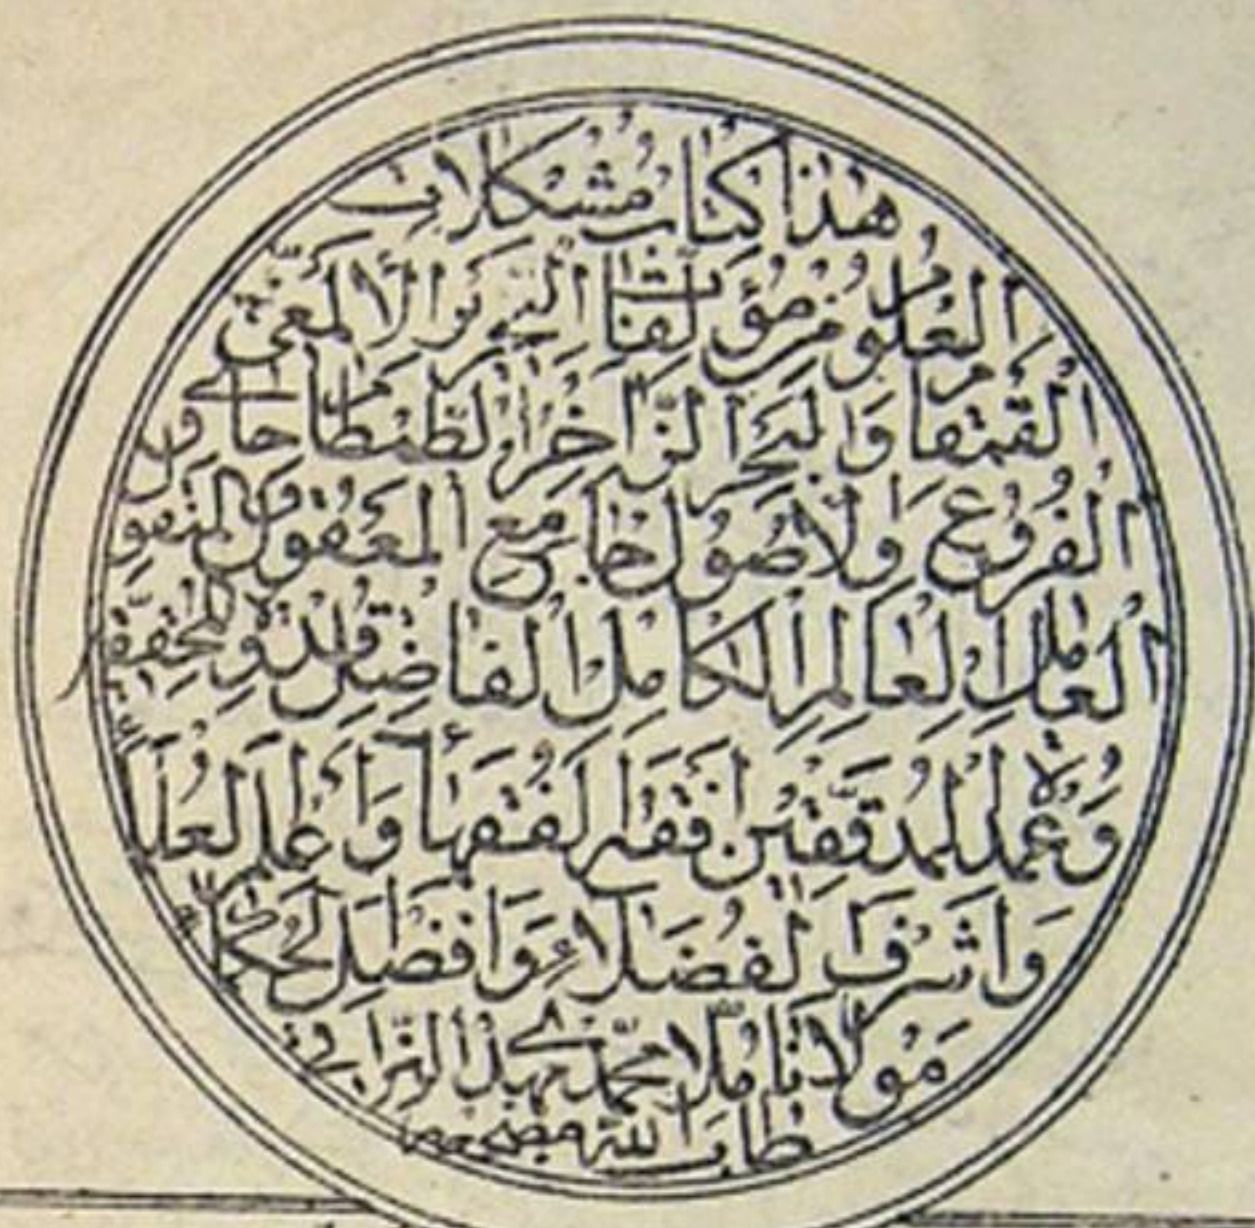 هٰذَا كِتَابُ مُشْكِلَاتِ
الْعُلُومِ مِنْ مُؤَلَّفَاتِ النِّحْرِيرِ الْأَلْمَعِيِّ
الْقَمْقَامِ وَالْبَحْرِ الزَّاخِرِ الطَّمْطَامِ حَاوِي
الْفُرُوعِ وَالْأُصُولِ جَامِعِ الْمَعْقُولِ وَالْمَنْقُولِ
الْعَامِلِ الْعَالِمِ الْكَامِلِ الْفَاضِلِ قُدْوَةِ الْمُحَقِّقِينَ
وَعُمْدَةِ الْمُدَقِّقِينَ أَفْقَهِ الْفُقَهَاءِ وَأَعْلَمِ الْعُلَمَاءِ
وَأَشْرَفِ الْفُضَلَاءِ وَأَفْضَلِ الْحُكَمَاءِ
مَوْلَانَا مُلَّا مُحَمَّد مَهْدِي النَّرَاقِي
طَابَ اللّٰهُ مَضْجَعَهُ